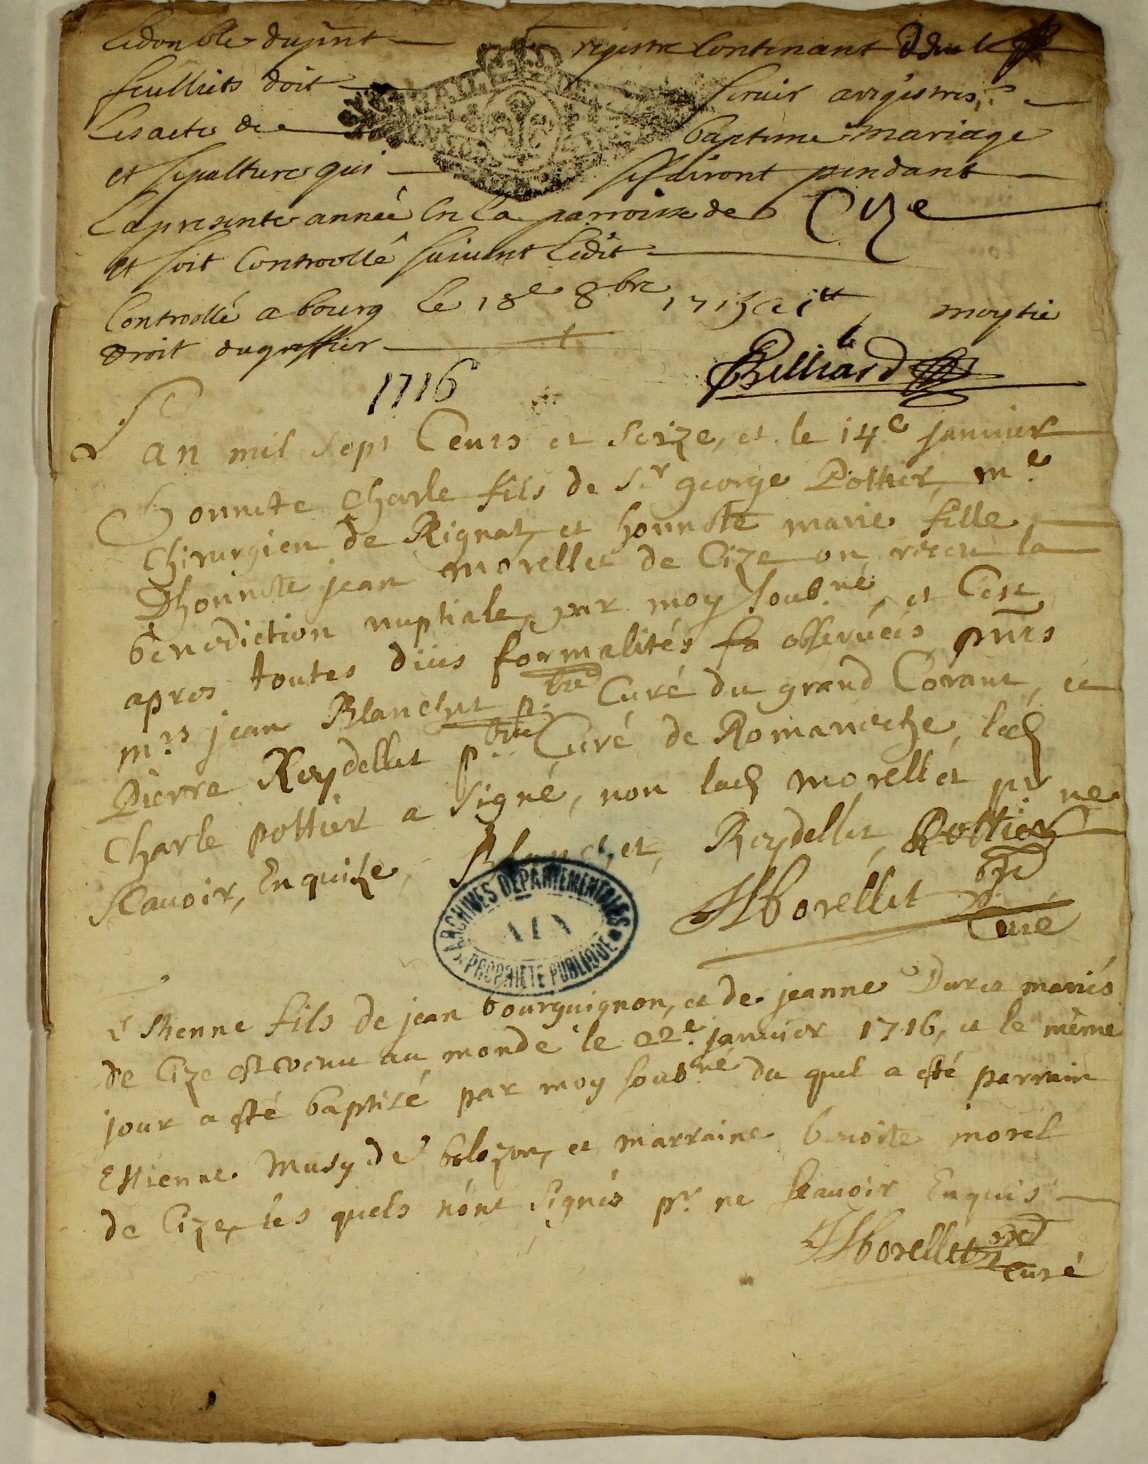 Ledouble dupnt registre Contenant
feuillets doit servir a registres
Les acte de baptême mariage
et sepultures qui se fairont pendant
La presente année En La parroisse de Cize
et soit Controollé suivent Ledit
Controollé a bourg le 18e 8bre 1715 moytie
droit du greffier
Billiard
1716
L'an mil sept Cents et seize, et le 14e janvier
honnete charle fils de Sr george Pottier, me
chirurgien de Rignat, et honnete marie fille
Dhonnete jean morellet de Cize on receu la
bénediction nuptiale par moy soubné, et Cest
apres toutes dües formalités fo observéés pnts
mrs jean Blanchet pbtre Curé du grand Corant, et
Pierre Reydellet pbtre Curé de Romaneche, led
Charle pottier a signé, non lad morellet pr ne
scavoir, Enquise, Blanchet, Reydellet, Pottier
Morellet
Curé
ARCHIVES DÉPARTEMENTALES
AIN
PROPRIÉTÉ PUBLIQUE
Etienne fils de jean bourguignon, et de jeanne Duret mariés
de Cize est venu au monde le 22e janvier 1716, et le même
jour a esté baptisé par moy soubné du quel a esté parrain
Estienne Musy de bolozon, et marraine benoite morel
de Cize, les quels n'ont signés pr ne scavoir Enquis
Morellet
Curé